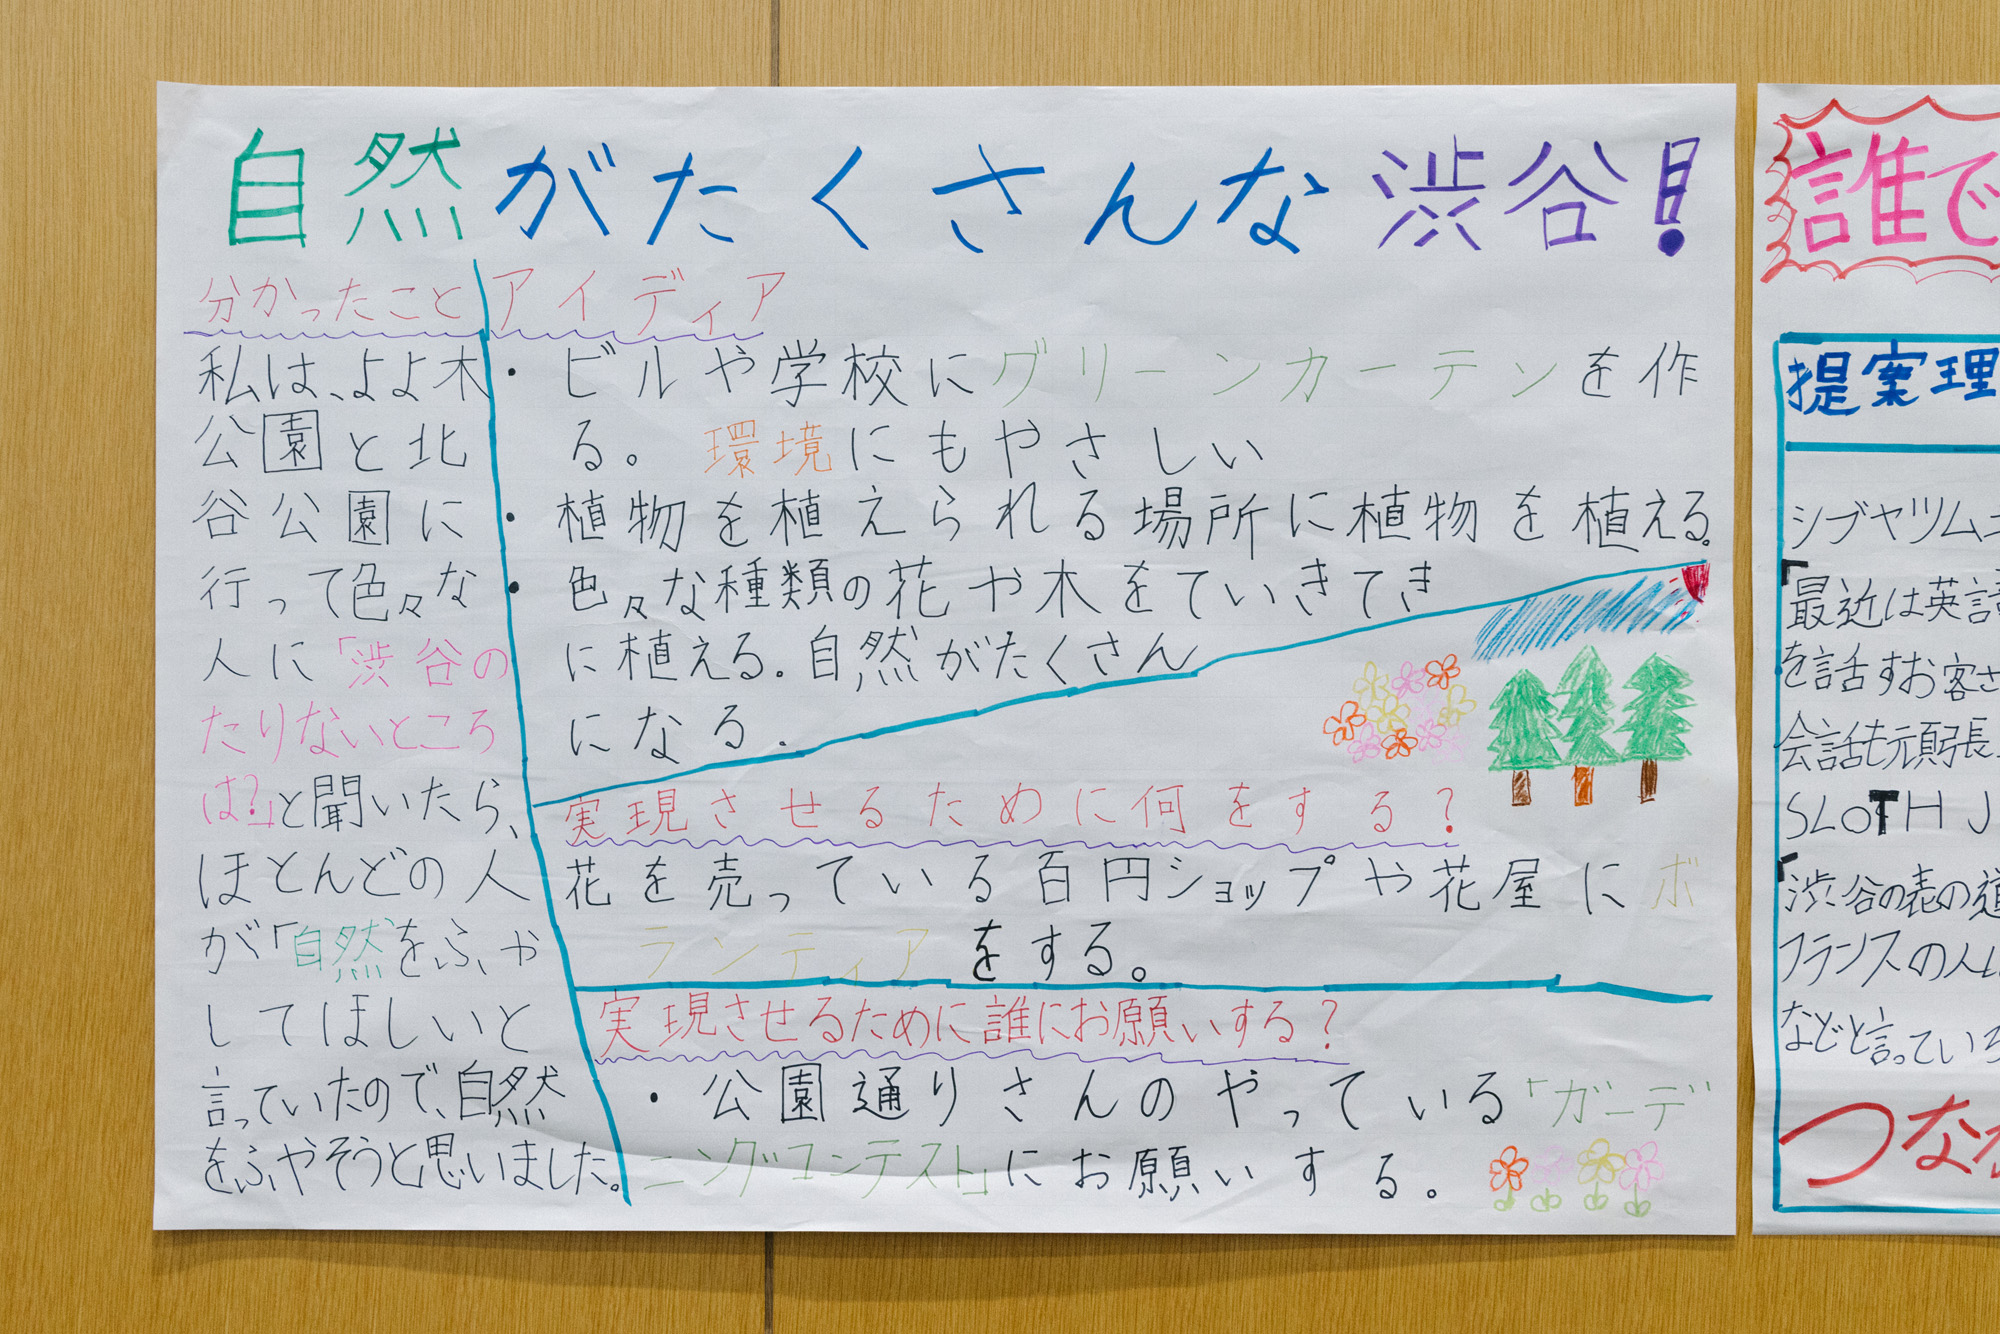 自然がたくさんな渋谷!
分かったこと
私は、よよ木
公園と北
谷公園に
行って色々な
人に「渋谷の
たりないところ
は?」と聞いたら、
ほとんどの人
が「自然をふや
してほしいと
言っていたので、自然
をふやそうと思いました。
アイディア
・ビルや学校にグリーンカーテンを作
る。環境にもやさしい
・植物を植えられる場所に植物を植える。
・色々な種類の花や木をていきてき
に植える。自然がたくさん
になる.
実現させるために何をする?
花を売っている百円ショップや花屋にボ
ランティアをする。
実現させるために誰にお願いする?
・公園通りさんのやっている「ガーデ
ニングコンテスト」にお願いする。
誰で
提案理
シブヤツム
「最近は英語
を話すお客さ
会話も頑張
SLOTH J
「渋谷の表の道
フランスの人
などと言っている
つなが